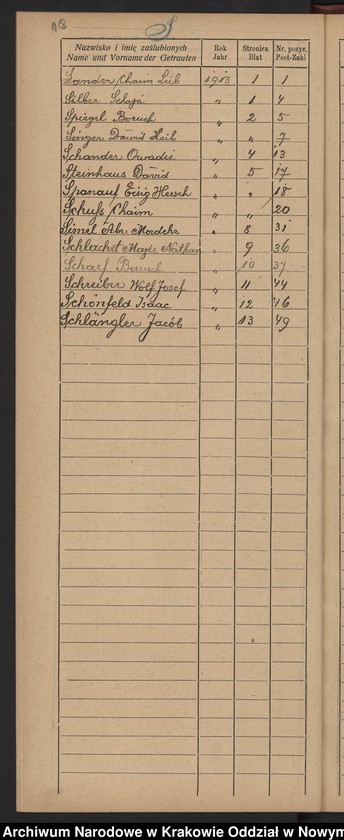 18
S
Nazwisko i imię zaślubionych Rok Stronica Nr. pozyc.
Name und Vorname der Getrauten Jahr Blat Post-Zahl
Sander Chaim Leib 1913 1 1
Silber Seloja „ 1 4
Spiegel Boruch „ 2 5
Singer Dawid Leib „ „ 7
Schander Owadie „ 4 13
Steinhaus Dawid 5 17
Spanauf Eisig Hersch „ „ 18
Schuss Chaim „ „ 20
Simel Abr Mordche „ 8 31
Schlachet Majer Nathan „ 9 36
Scharf Baruch „ 10 37
Schreiber Wolf Josef „ 11 44
Schönfeld Isaac „ 12 46
Schlängler Jacób „ 13 49
Archiwum Narodowe w Krakowie Oddział w Nowym